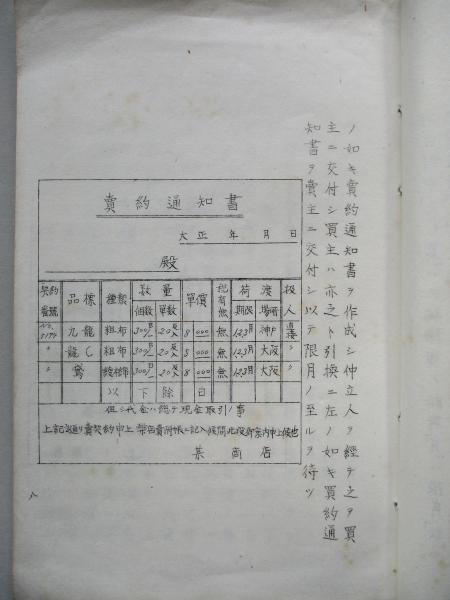 ノ如キ賣約通知書ヲ作成シ仲立人ヲ經テ之ヲ買
主ニ交付シ買主ハ亦之ト引換ニ左ノ如キ買約通
知書ヲ賣主ニ交付シ以テ限月ノ至ルヲ待ツ
賣約通知書
大正 年 月 日
殿
契約番號 品標 種類 数量 個数 單数 單價 税有無 荷渡 期限 場所 扱人
九龍 粗布 300 20反 8 000 無 1,2,3月 神戸 直接
〃 龍C 粗布 300 20反 8 000 無 1,2,3月 大阪 〃
〃 鷲 300 20反 8 000 無 1,2,3月 大阪 〃
以下餘白
但シ代金ハ總テ現金取引ノ事
上記通リ賣契約申上
某商店
八